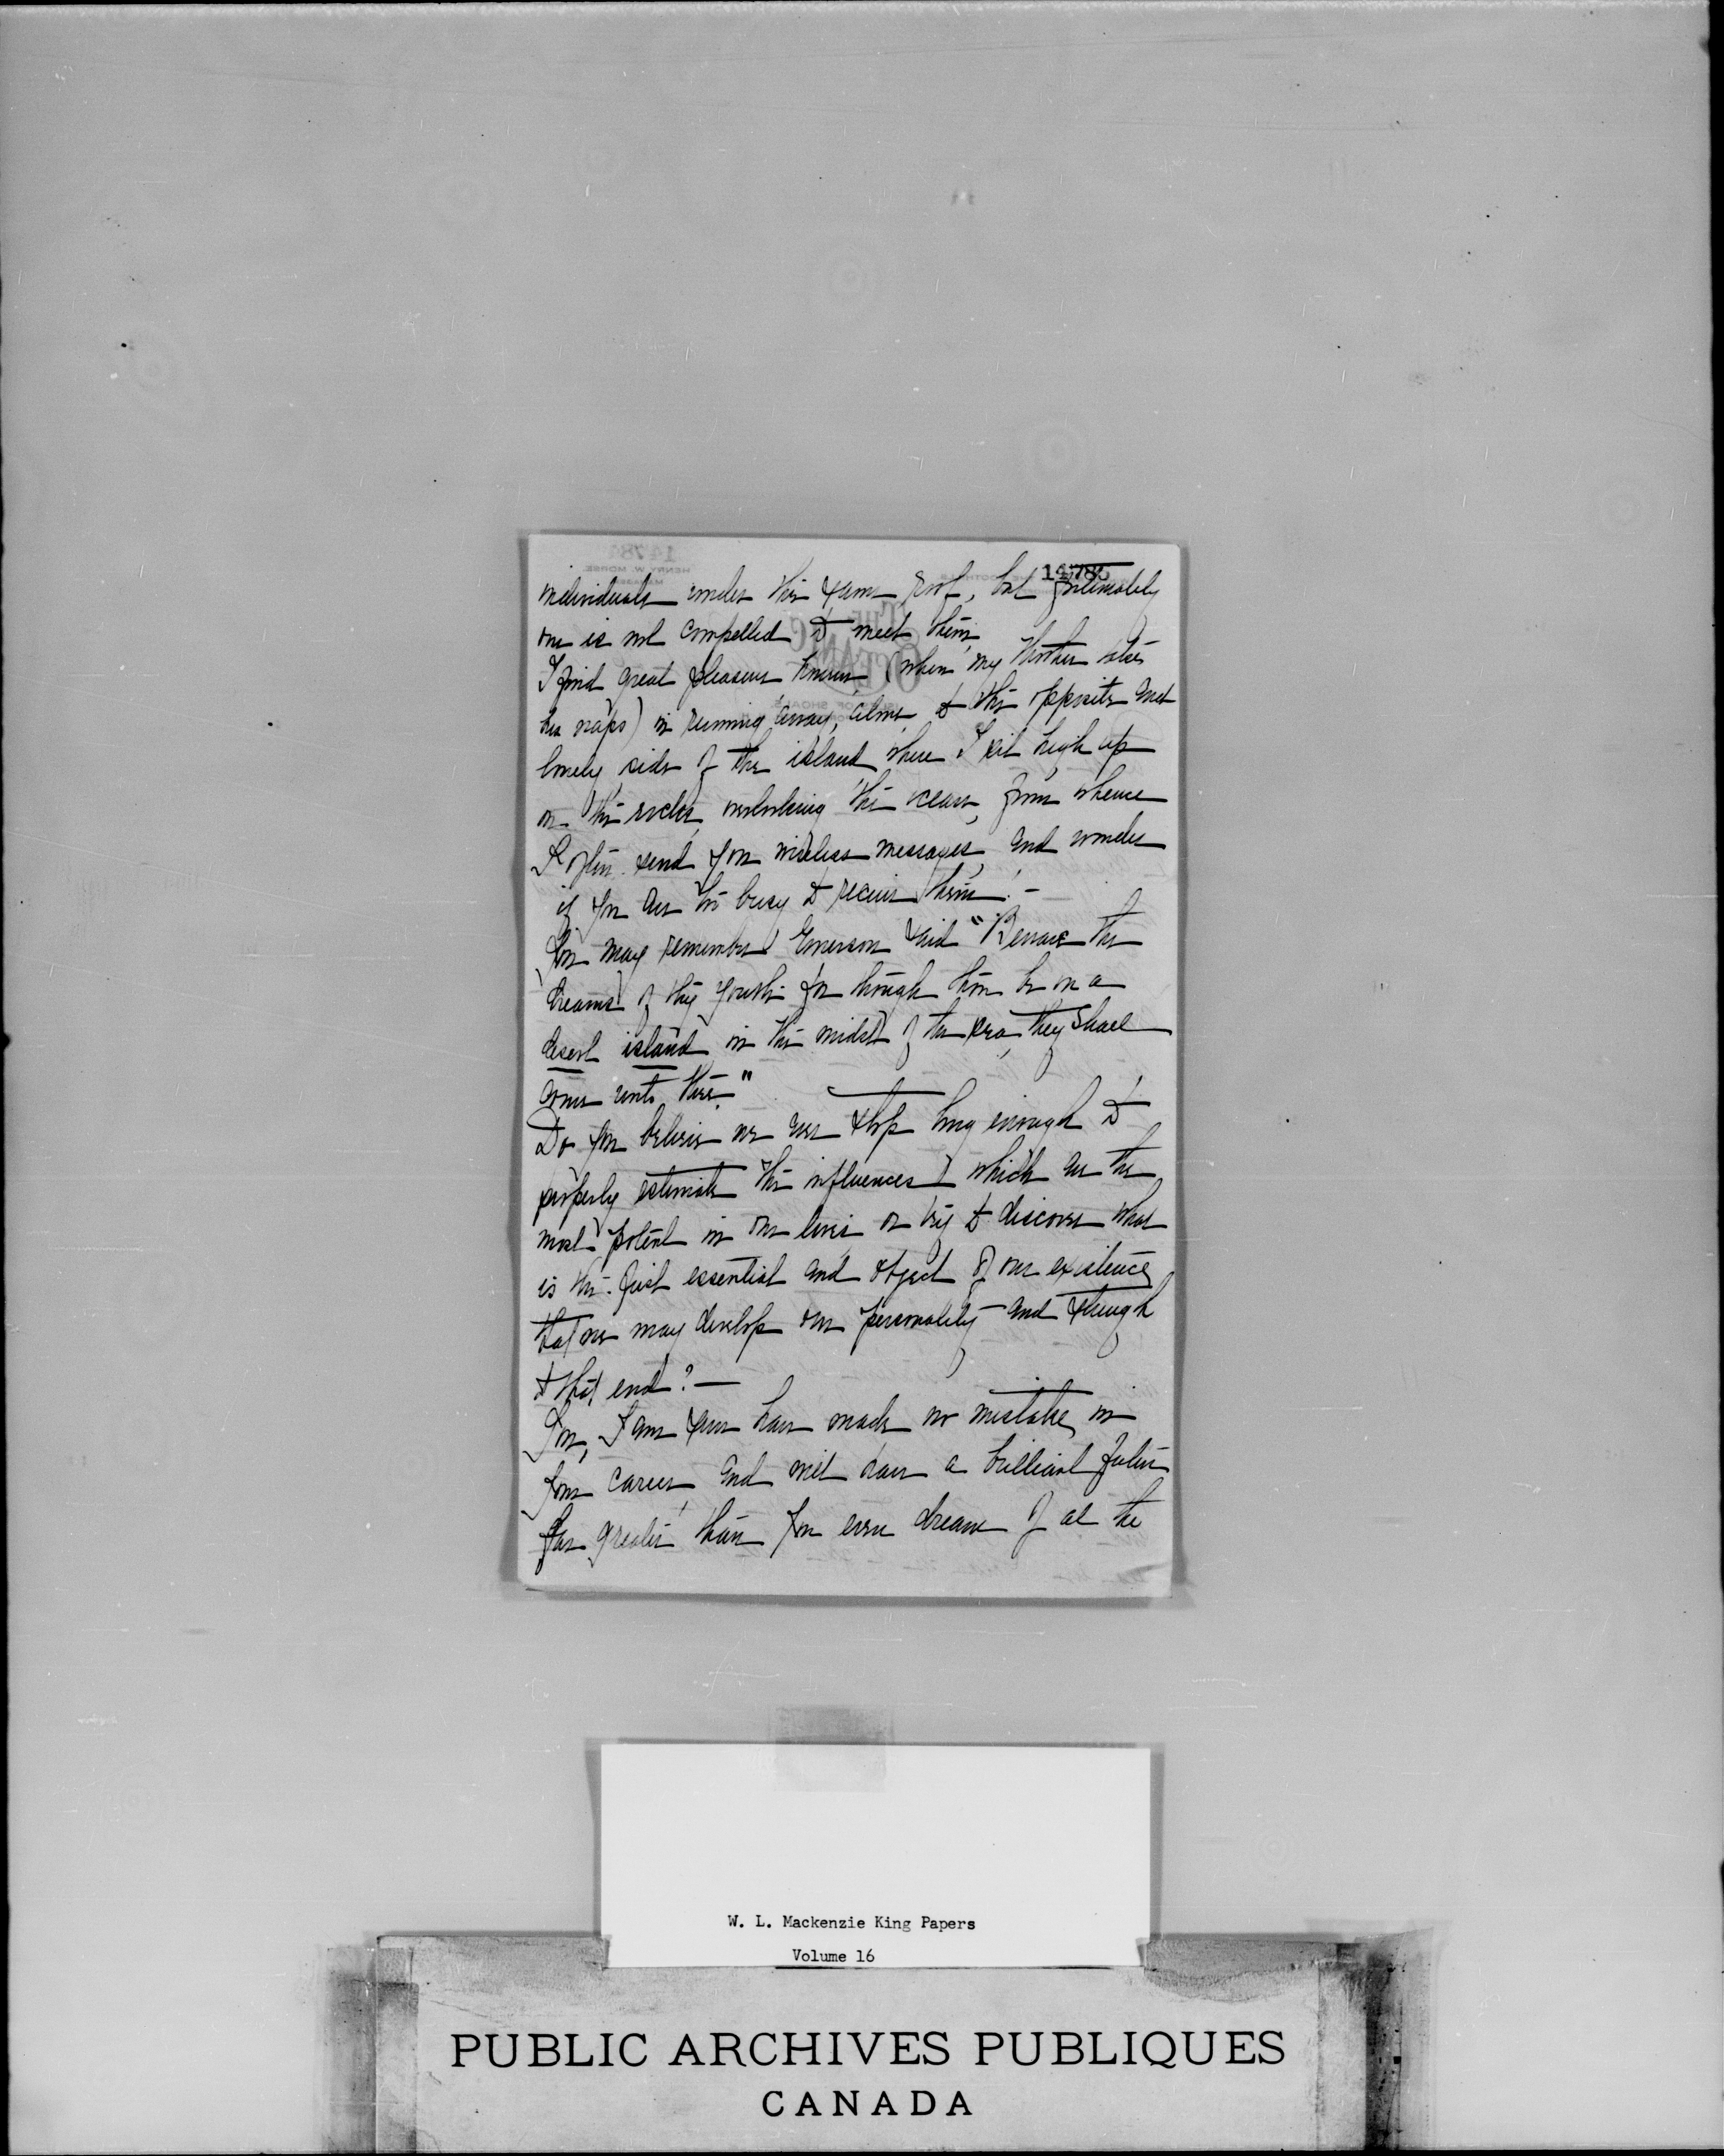 14785
individuals under the same roof, but fortunately
one is not compelled to meet them.
I find great pleasure however (when my Mother takes
her naps) in running away, alone to the opposite and
lonely side of the island where I sit high up
on the rocks overlooking the ocean, from whence
I often send you wireless messages, and wonder
if you are too busy to receive them! -
You may remember Emerson said "Beware the
dreams of thy youth for though thou be on a
desert island in the midst of the sea they shall
come unto thee."
Do you believe we ever stop long enough to
properly estimate the influences which are the
most potent in our lives or try to discover what
is the first essential and object of our existence
that we may develop our personality and strength
to that end? -
You, I am sure have made no mistake in
your career and will have a brilliant future
far greater than you even dream of at the
W. L. Mackenzie King Papers
Volume 16
PUBLIC ARCHIVES PUBLIQUES
CANADA